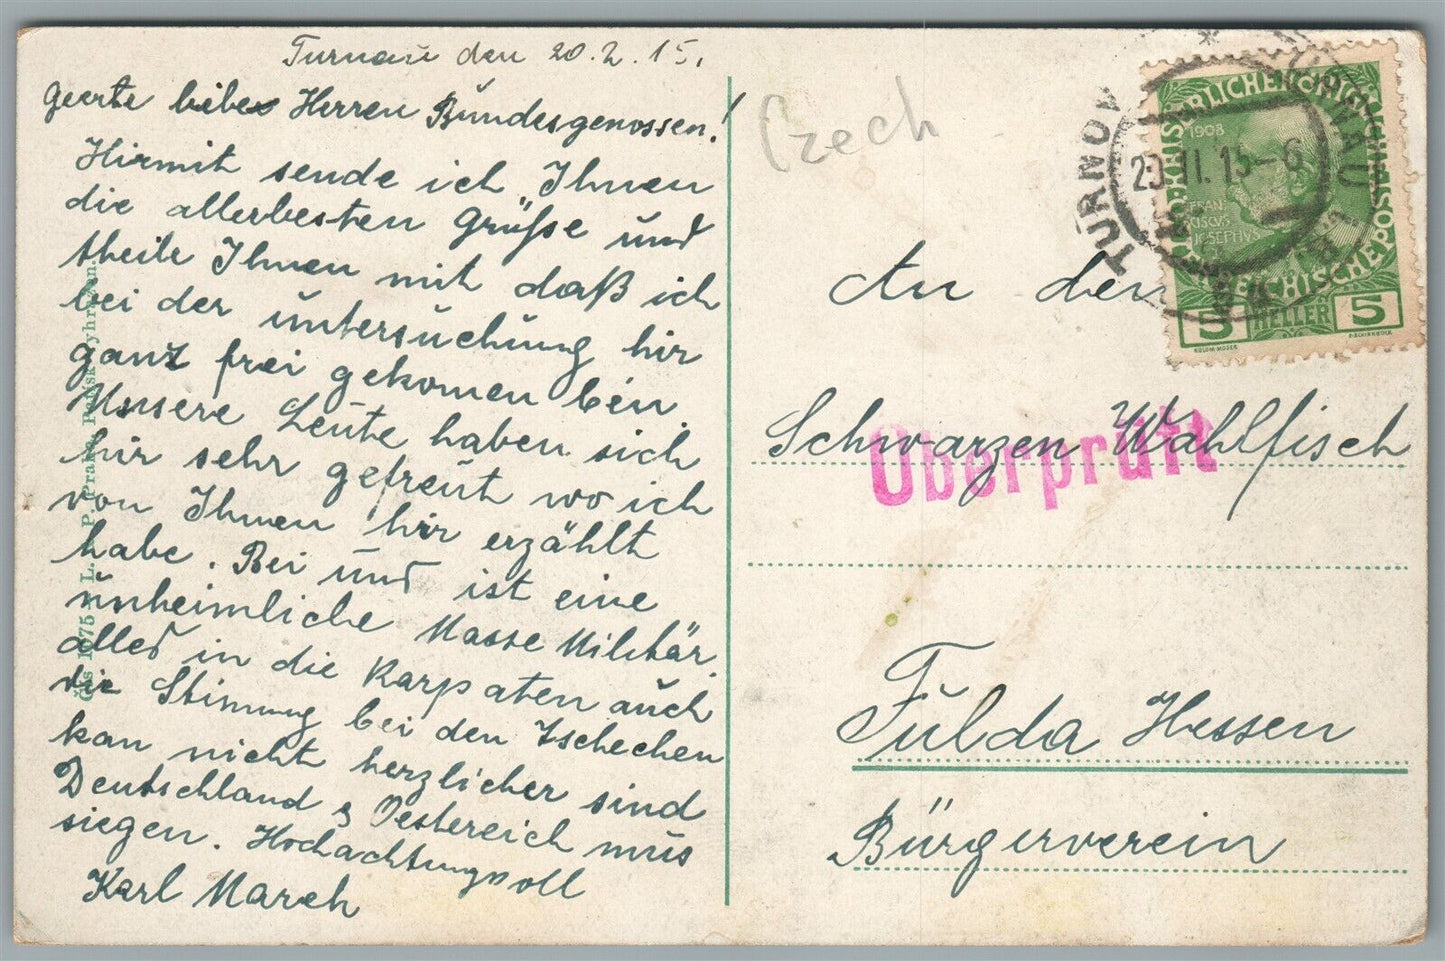 Turnau den 20.2.15.
Geerte liebe Herren Bundesgenossen!
Hirmit sende ich Ihnen
die allerbesten Grüsse und
theile Ihnen mit daß ich
bei der untersuchung hir
ganz frei gekomen bin.
Unsere Leute haben sich
hir sehr gefreut wo ich
von Ihnen hir erzählt
habe. Bei und ist eine
unheimliche Masse Militär
alles in die Karpaten auch
die Stimung bei den Tschechen
kan nicht herzlicher sind
Deutschland & Oestereich mus
siegen. Hochachtungsvoll
Karl March
Czech
TURNOV
TURNAU
20.II.15-6
1908
FRAN
CISCVS
JOSEPHVS
5 HELLER 5
KOLOM. MOSER
F. SCHIRNBÖCK
An den
Schwarzen Wahlfisch
Überprüft
Fulda Hessen
Bürgerverein